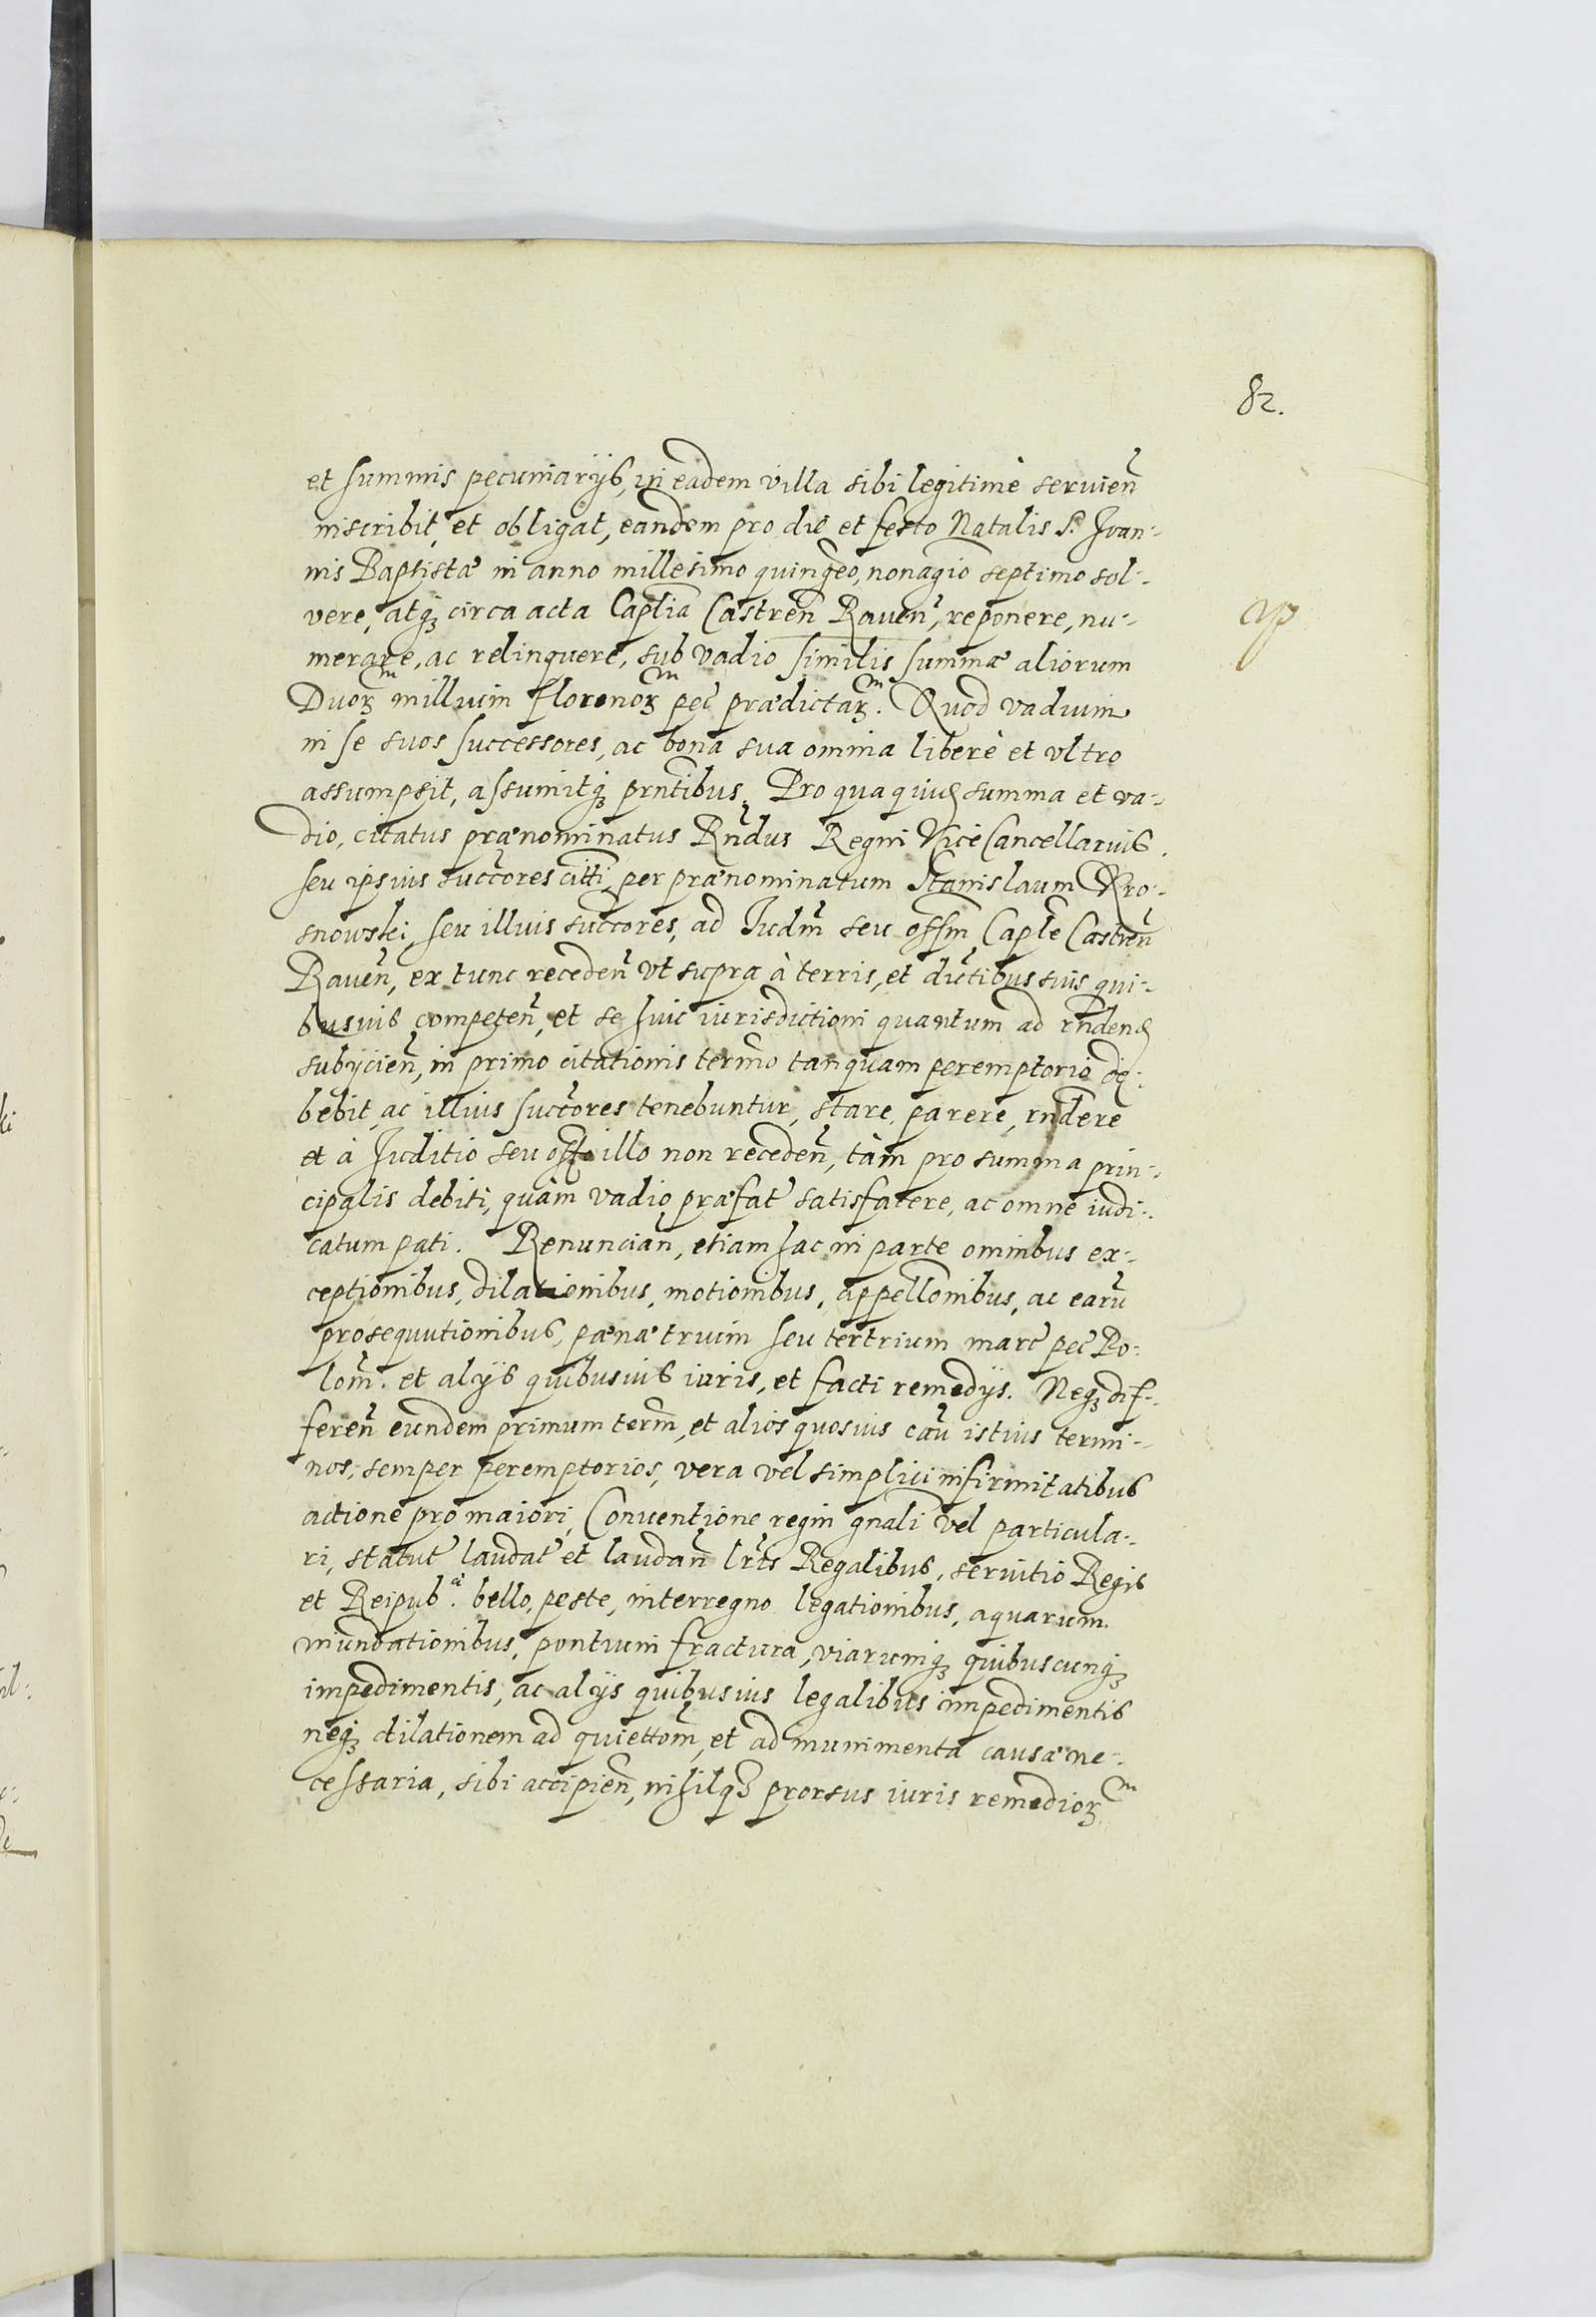 82.
et summis pecuniarijs, in eadem villa sibi legitimè servien̄
inscribit, et obligat, eandem pro die et festo Natalis S. Ioan-
nis Baptistæ in anno millesimo quingēo, nonagīo septimo sol-
vere, atq₃ circa acta Cap̄tia Castren̄ Raven̄, reponere, nu-
merare, ac relinquere, sub vadio similis summæ aliorum
Duorꝫ millium florenorꝫ pec̄ prædictarꝫ. Quod vadium
in se suos successores, ac bona sua omnia liberè et vltro
assumpsit, assumitq₃ prn̄tibus. Pro qua quid₃ summa et va-
dio, citatus prænominatus Rn̄dus Regni ViceCancellarius
seu ipsius succ̄ores citti, per prænominatum Stanislaum Kro-
snowski, seu illius succ̄ores, ad Iudm̄ seu offm̄ Cap̄le Castren̄
Raven̄, ex tunc receden̄ vt supra à terris, et dic̄tibus suis qui-
busuis competen̄, et se huic iurisdictioni quantum ad rn̄den₃
subijcien̄, in primo citationis termo tanquam peremptorio de-
bebit, ac illius succ̄ores tenebuntur, stare, parere, rn̄dere
et à Iuditio seu offo illo non receden̄, tàm pro summa prin-
cipalis debiti, quàm vadio præfat̄ satisfacere, ac omne iudi-
catum pati. Renuncian̄, etiam hac in parte omnibus ex-
ceptionibus, dilationibus, motionibus, appellōnibus, ac earū
prosequutionibus, pænæ trium seu ter trium marc̄ pec̄ Po-
lom̄. et alijs quibusuis iuris, et facti remedijs. Neq₃ dif-
feren̄ eundem primum term̄, et alios quosuis cāu istius termi-
nos, semper peremptorios, vera vel simplici infirmitatibus
actione pro maiori, Conventione regni gn̄ali vel particula-
ri, statut̄ laudat̄ et laudan̄ lr̄ts Regalibus, seruitio Regis
et Reipub.æ bello, peste, interregno legationibus, aquarum
inundationibus, pontium fractura, viarumq₃ quibuscunq₃
impedimentis, ac alijs quibusuis legalibus impedimentis
neq₃ dilationem ad quiettom̄, et ad munimenta causæ ne-
cessaria, sibi accipien̄, nihilq₃ prorsus iuris remediorꝫ